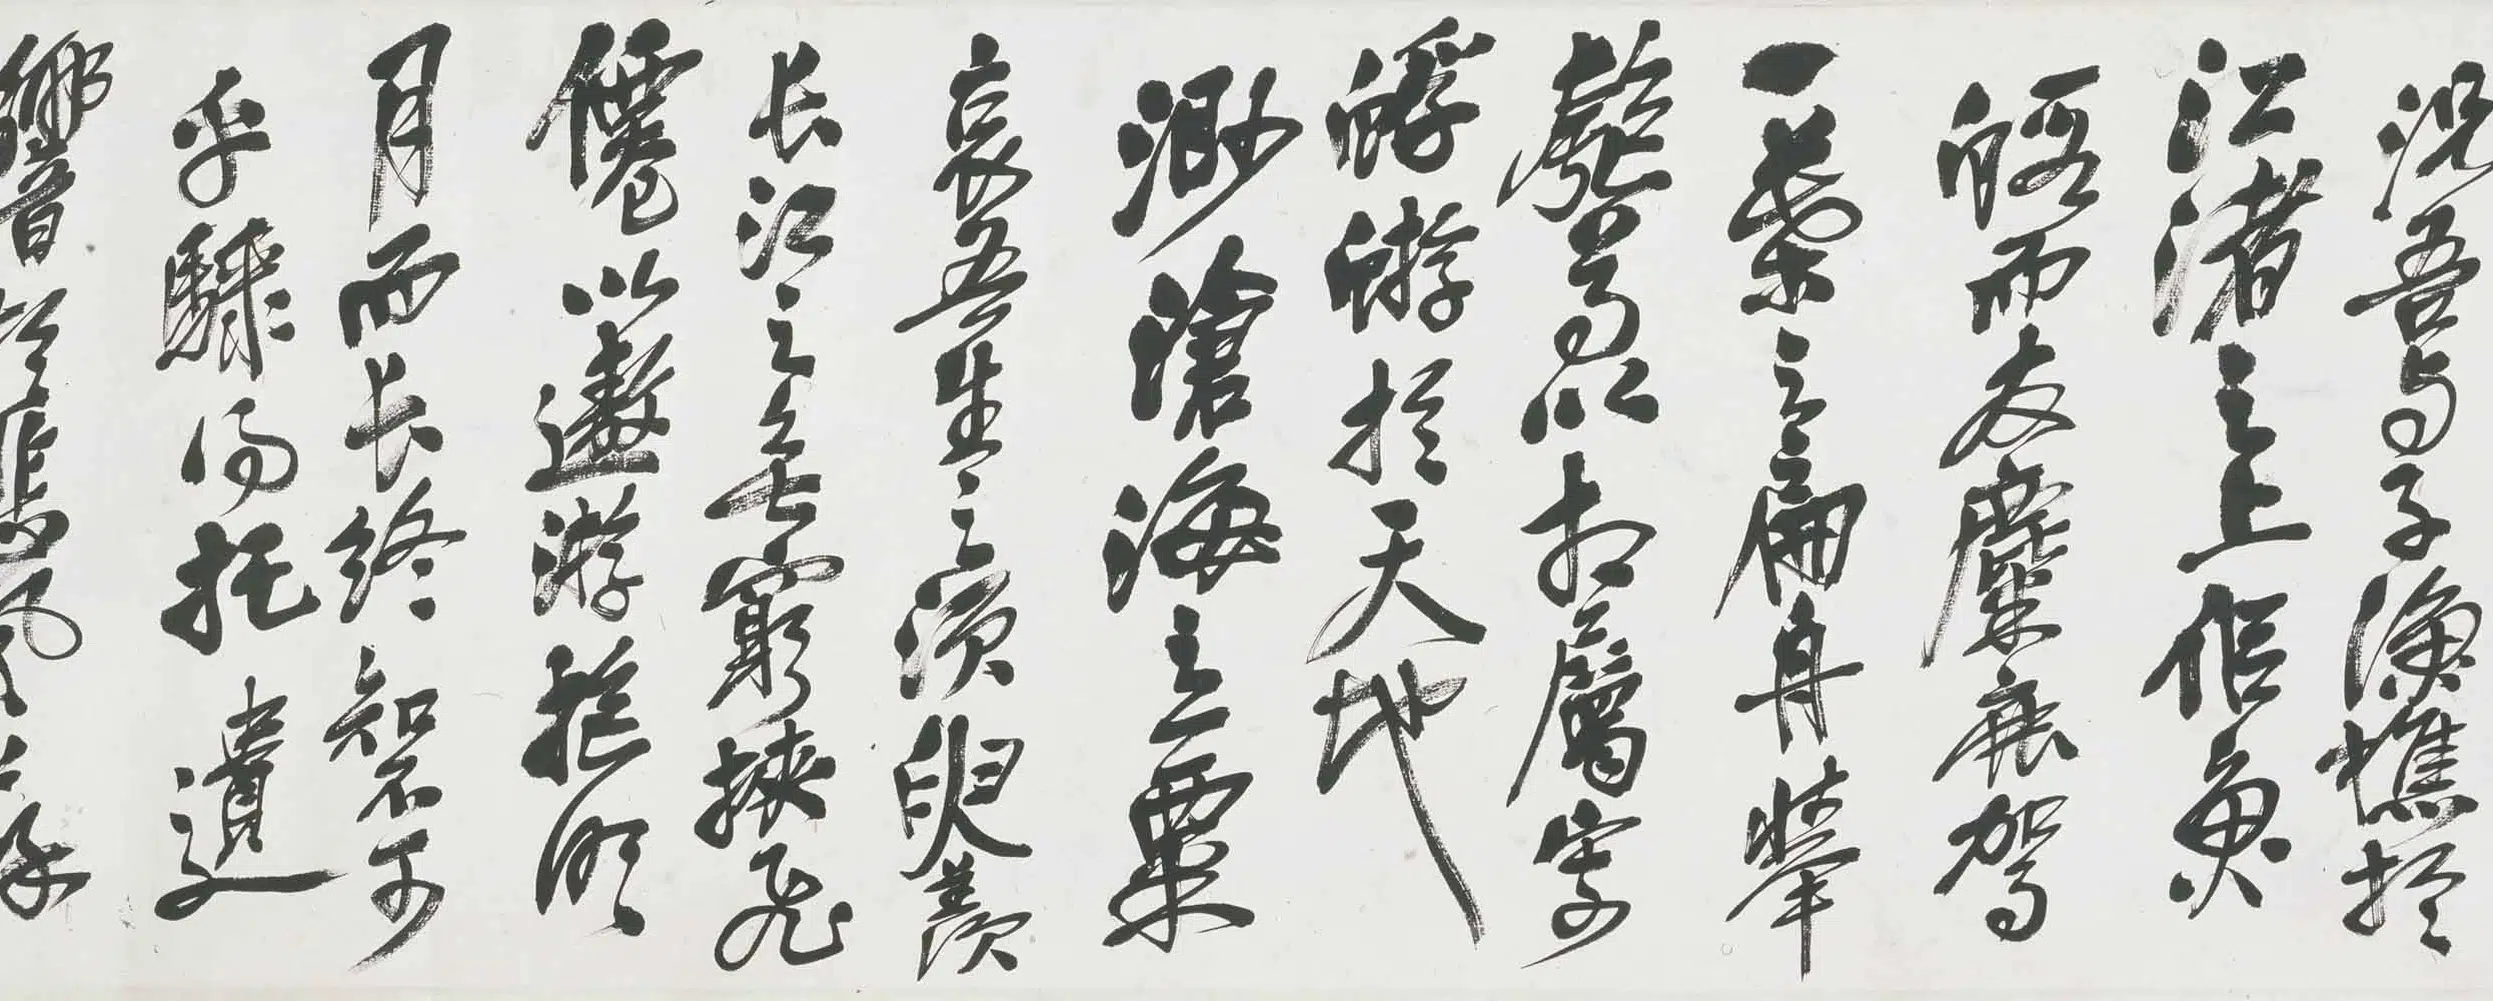 況吾与子漁樵於
江渚之上侣魚
鰕而友麋鹿駕
一葉之扁舟舉
匏尊以相屬寄
蜉蝣於天地
渺滄海之一粟
哀吾生之須臾羨
長江之無窮挾飛
僊以遨游抱明
月而長終知不可
乎驟得托遺
響於悲風蘇子